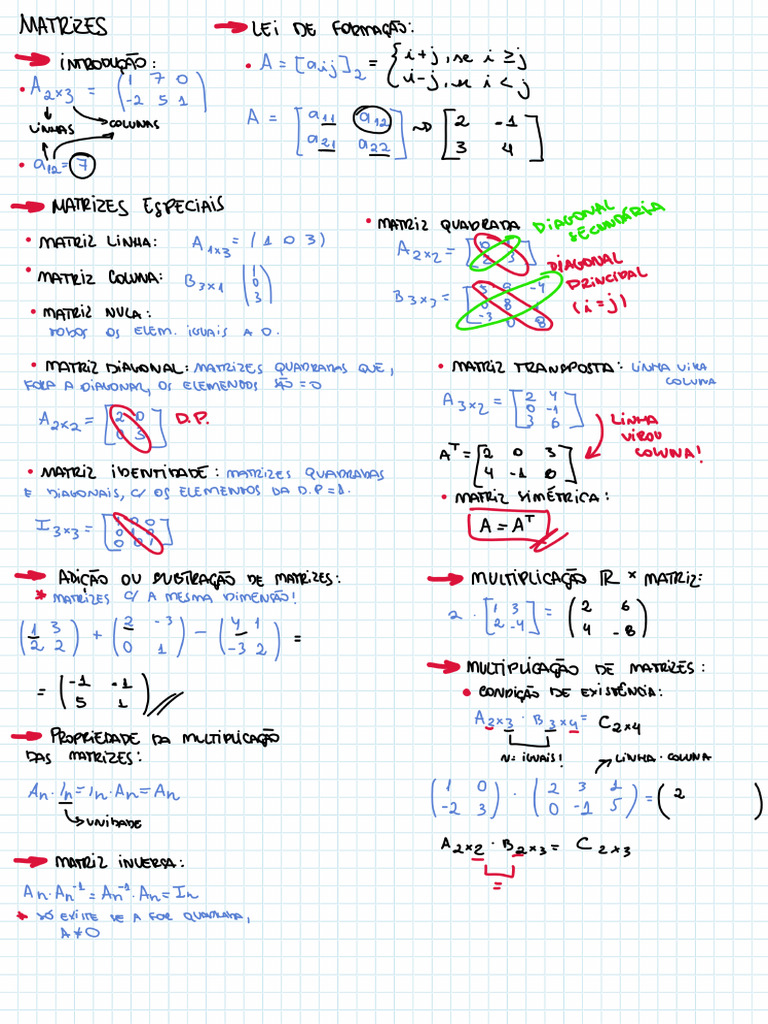 MATRIZES
→ INTRODUÇÃO:
• A2×3 = (1 7 0
-2 5 1)
LINHAS COLUNAS
• a12 = 7
→ LEI DE FORMAÇÃO:
• A = [aij]2 = { i+j, se i ≥ j
i-j, se i < j
A = [a11 a12
a21 a22] → [2 -1
3 4]
→ MATRIZES ESPECIAIS
• MATRIZ LINHA: A1×3 = (1 0 3)
• MATRIZ COLUNA: B3×1 (1
0
3)
• MATRIZ NULA:
TODOS OS ELEM. IGUAIS A 0.
• MATRIZ QUADRADA
DIAGONAL
SECUNDÁRIA
A2×2 =
DIAGONAL
PRINCIPAL
(i=j)
• MATRIZ DIAGONAL: MATRIZES QUADRADAS QUE,
FORA A DIAGONAL, OS ELEMENTOS SÃO = 0
A2×2 = [2 0
0 3] D.P.
• MATRIZ IDENTIDADE: MATRIZES QUADRADAS
E DIAGONAIS, C/ OS ELEMENTOS DA D.P = 1.
I3×3 = [1 0 0
0 1 0
0 0 1]
• MATRIZ TRANSPOSTA: LINHA VIRA
COLUNA
A3×2 = [2 4
0 -1
3 6]
LINHA
VIROU
COLUNA!
Aᵀ = [2 0 3
4 -1 6]
• MATRIZ SIMÉTRICA:
A = Aᵀ
→ ADIÇÃO OU SUBTRAÇÃO DE MATRIZES:
* MATRIZES C/ A MESMA DIMENSÃO!
(1 3
2 2) + (2 -3
0 1) - (4 1
-3 2) =
= (-1 -1
5 1)
→ MULTIPLICAÇÃO ℝ × MATRIZ:
2 · [1 3
2 -4] = (2 6
4 -8)
→ MULTIPLICAÇÃO DE MATRIZES:
• CONDIÇÃO DE EXISTÊNCIA:
A2×3 · B3×4 = C2×4
N= IGUAIS!
LINHA · COLUNA
(1 0
-2 3) · (2 3 1
0 -1 5) = (2 )
A2×2 · B2×3 = C2×3
=
→ PROPRIEDADE DA MULTIPLICAÇÃO
DAS MATRIZES:
An · In = In · An = An
UNIDADE
→ MATRIZ INVERSA:
An · An⁻¹ = An⁻¹ · An = In
* SÓ EXISTE SE A FOR QUADRADA,
A ≠ 0